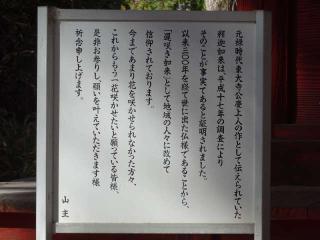 元禄時代東大寺公慶上人の作として伝えられていた
釈迦如来は、平成十七年の調査により
そのことが事実であると証明されました。
以来三〇〇年を経て世に出た仏様であることから、
「遅咲き如来」として地域の人々に改めて
信仰されております。
今まであまり花を咲かせられなかった方々、
これからもう一花咲かせたいと願っている皆様、
是非お参りし、願いを叶えていただきます様
祈念申し上げます。
山主